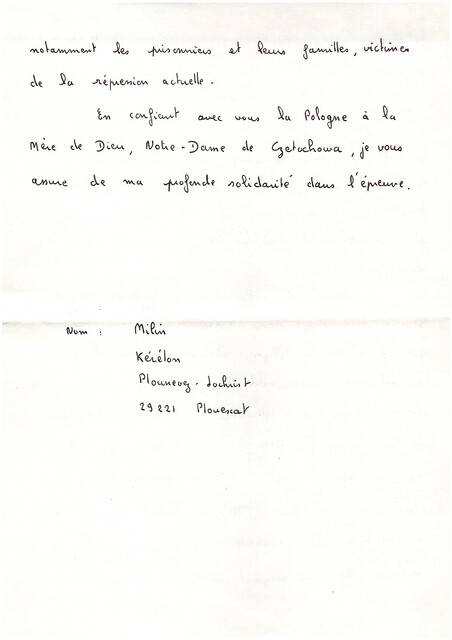 notamment les prisonniers et leurs familles, victimes
de la répression actuelle.
En confiant avec vous la Pologne à la
Mère de Dieu, Notre-Dame de Czetochowa, je vous
assure de ma profonde solidarité dans l'épreuve.
Nom : Milin
Kérélon
Plounevez-Lochrist
29221 Plouescat